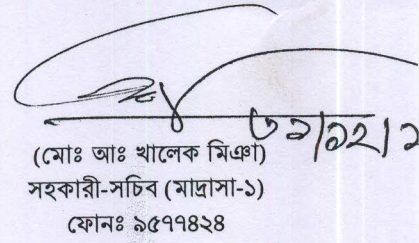 ৩১/১২/১
(মোঃ আঃ খালেক মিঞা)
সহকারী-সচিব (মাদ্রাসা-১)
ফোনঃ ৯৫৭৭৪২৪